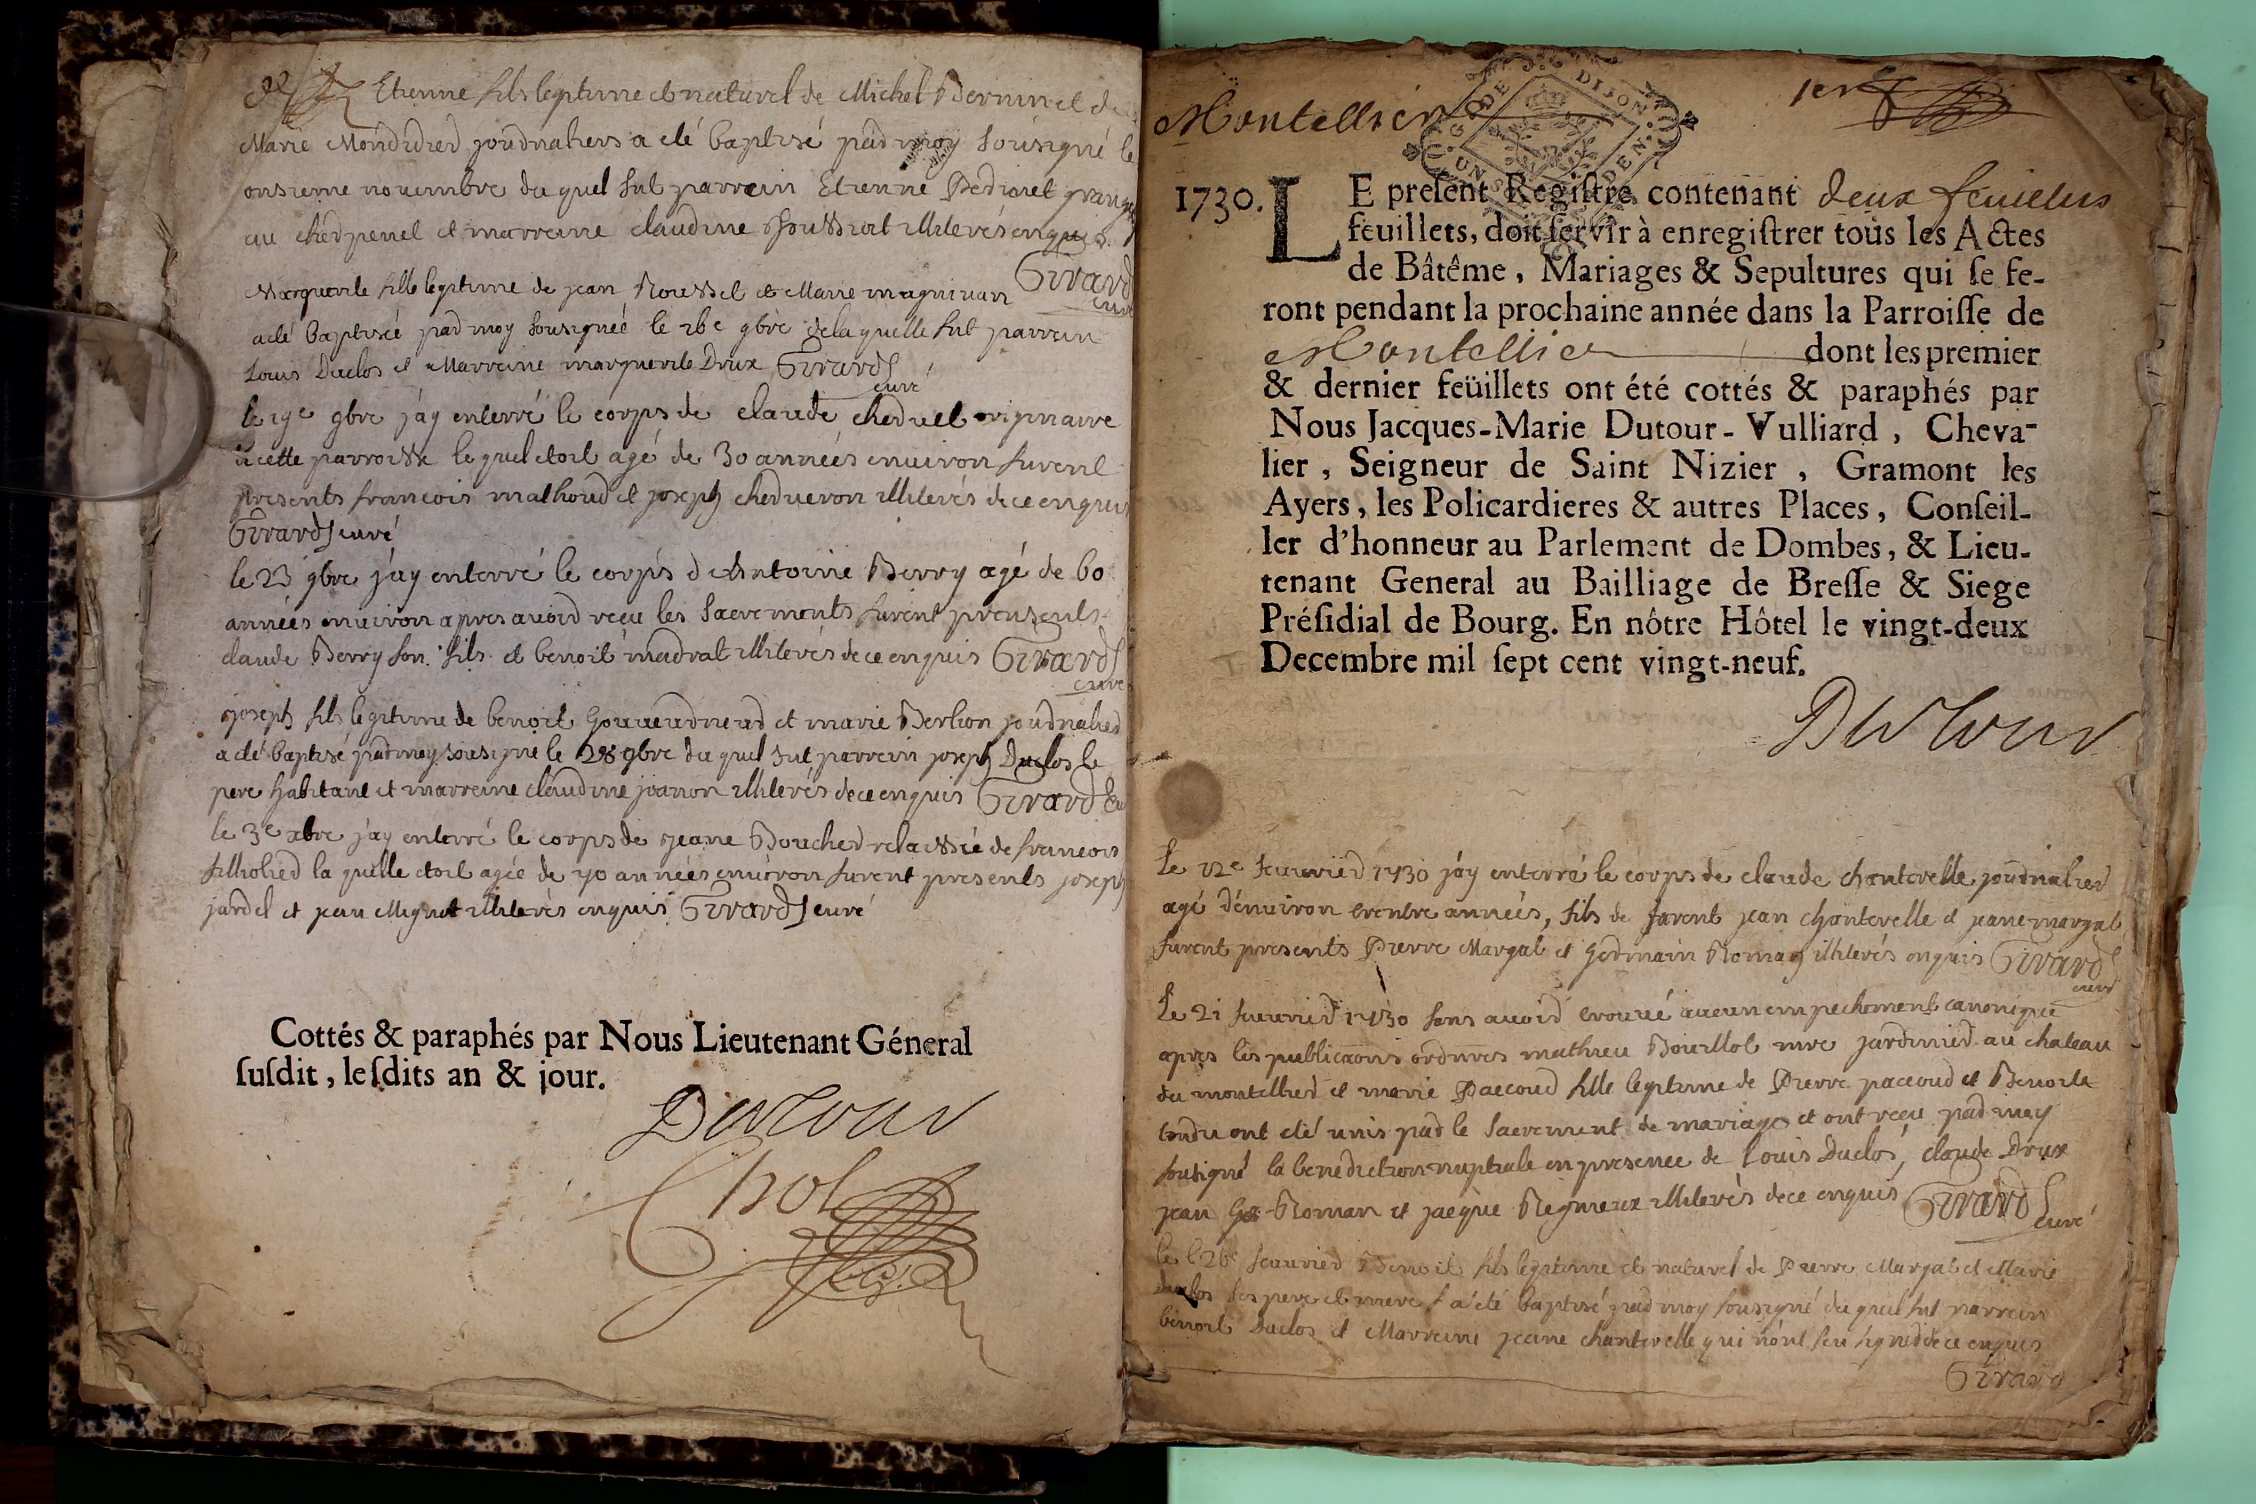 Etienne fils legitime et naturel de Michel Bernin et de
Marie Mondidier journaliers a eté baptisé par moy sousigné le
onsieme novembre du quel fut parrein Etienne Pediouet granger
au chedpenel et marreine claudine illiterés enquis
Girard
curé
Marguerite fille legitime de jean Roussel et Marie magninan
a eté baptisée par moy sousignée le 16e 9bre de la quelle fut parrein
Louis Duclos et Marreine marguerite Drux Girard
curé
le 19e 9bre j'ay enterré le corps de claude cheduel originaire
de cette parroisse le quel etoit agé de 30 années environ furent
presents francois malhoud et joseph chedueron illiterés de ce enquis
Girard curé
le 23 9bre j'ay enterré le corps d'Antoine Berry agé de 60
années environ apres avoir reçu les Sacrements furent presents
claude Berry son fils et benoit madrat illiterés de ce enquis Girard
curé
joseph fils legitime de benoit et marie Berlion journalier
a eté baptisé par moy sousigné le 28 9bre du quel fut parrein joseph Duclos le
pere habitant et marreine claudine joanon illiterés de ce enquis Girard
le 3e xbre j'ay enterré le corps de jeane Boucher relaissée de francois
filliolied la quelle etoit agée de 70 années environ furent presents joseph
jardel et jean Mignot illiterés enquis Girard curé
Cottés & paraphés par Nous Lieutenant Géneral
susdit, lesdits an & jour.
Dutour
Chol
Montellier
1er
G. DE DIJON
1730. LE present Registre contenant deux feuillets
feuillets, doit servir à enregistrer tous les Actes
de Bâtême, Mariages & Sepultures qui se fe-
ront pendant la prochaine année dans la Parroisse de
Montellier dont les premier
& dernier feüillets ont été cottés & paraphés par
Nous Jacques-Marie Dutour-Vulliard, Cheva-
lier, Seigneur de Saint Nizier, Gramont les
Ayers, les Policardieres & autres Places, Conseil-
ler d'honneur au Parlement de Dombes, & Lieu-
tenant General au Bailliage de Bresse & Siege
Présidial de Bourg. En nôtre Hôtel le vingt-deux
Decembre mil sept cent vingt-neuf.
Dutour
Le 12e feuvrier 1730 j'ay enterré le corps de claude chanterelle journalier
agé d'environ trentre années, fils de furent jean chanterelle et jeane margat
furent presents Pierre Margat et Germain Roman illiterés enquis Girard
curé
Le 21 feuvrier 1730 sans avoir trouvé aucun empechement canonique
apres les publicaons ordinres mathieu Bourllot mre jardinier au chateau
du montellier et marie Paccoud fille legitime de Pierre paccoud et Benoite
tondu ont eté unis par le Sacrement de mariage et ont reçu par moy
sousigné la benediction nuptiale en presence de Louis Duclos, claude Drux
jean Roman et jacque Regnieux illiterés de ce enquis Girard
curé
le 26e feuvrier Benoit fils legitime et naturel de Pierre Margat et Marie
duclos ses pere et mere a eté baptisé par moy sousigné du quel fut parrein
benoit Duclos et Marreine jeane chanterelle qui n'ont seu signer de ce enquis
Girard